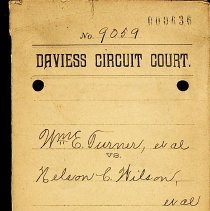 000636
No. 9059
DAVIESS CIRCUIT COURT.
Wm E. Turner, et al
VS.
Nelson C. Wilson,
et al